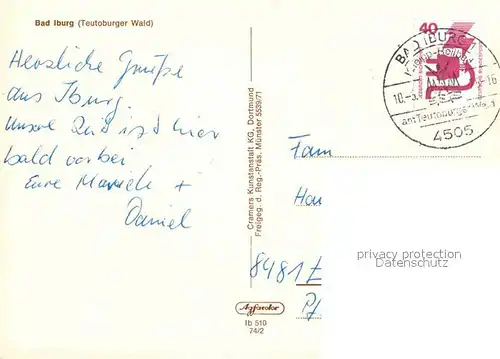 Bad Iburg (Teutoburger Wald)
Herzliche Grüße
aus Iburg.
Unsere Zeit ist hier
bald vorbei
Eure Mariele +
Daniel
Cramers Kunstanstalt KG, Dortmund
Freigeg. d. Reg.-Präs. Münster 5539/71
Agfacolor
Ib 510
74/2
40
BAD IBURG
-16
10.-3.
am Teutoburger
4505
Fam
Hau
8481
privacy protection
Datenschutz